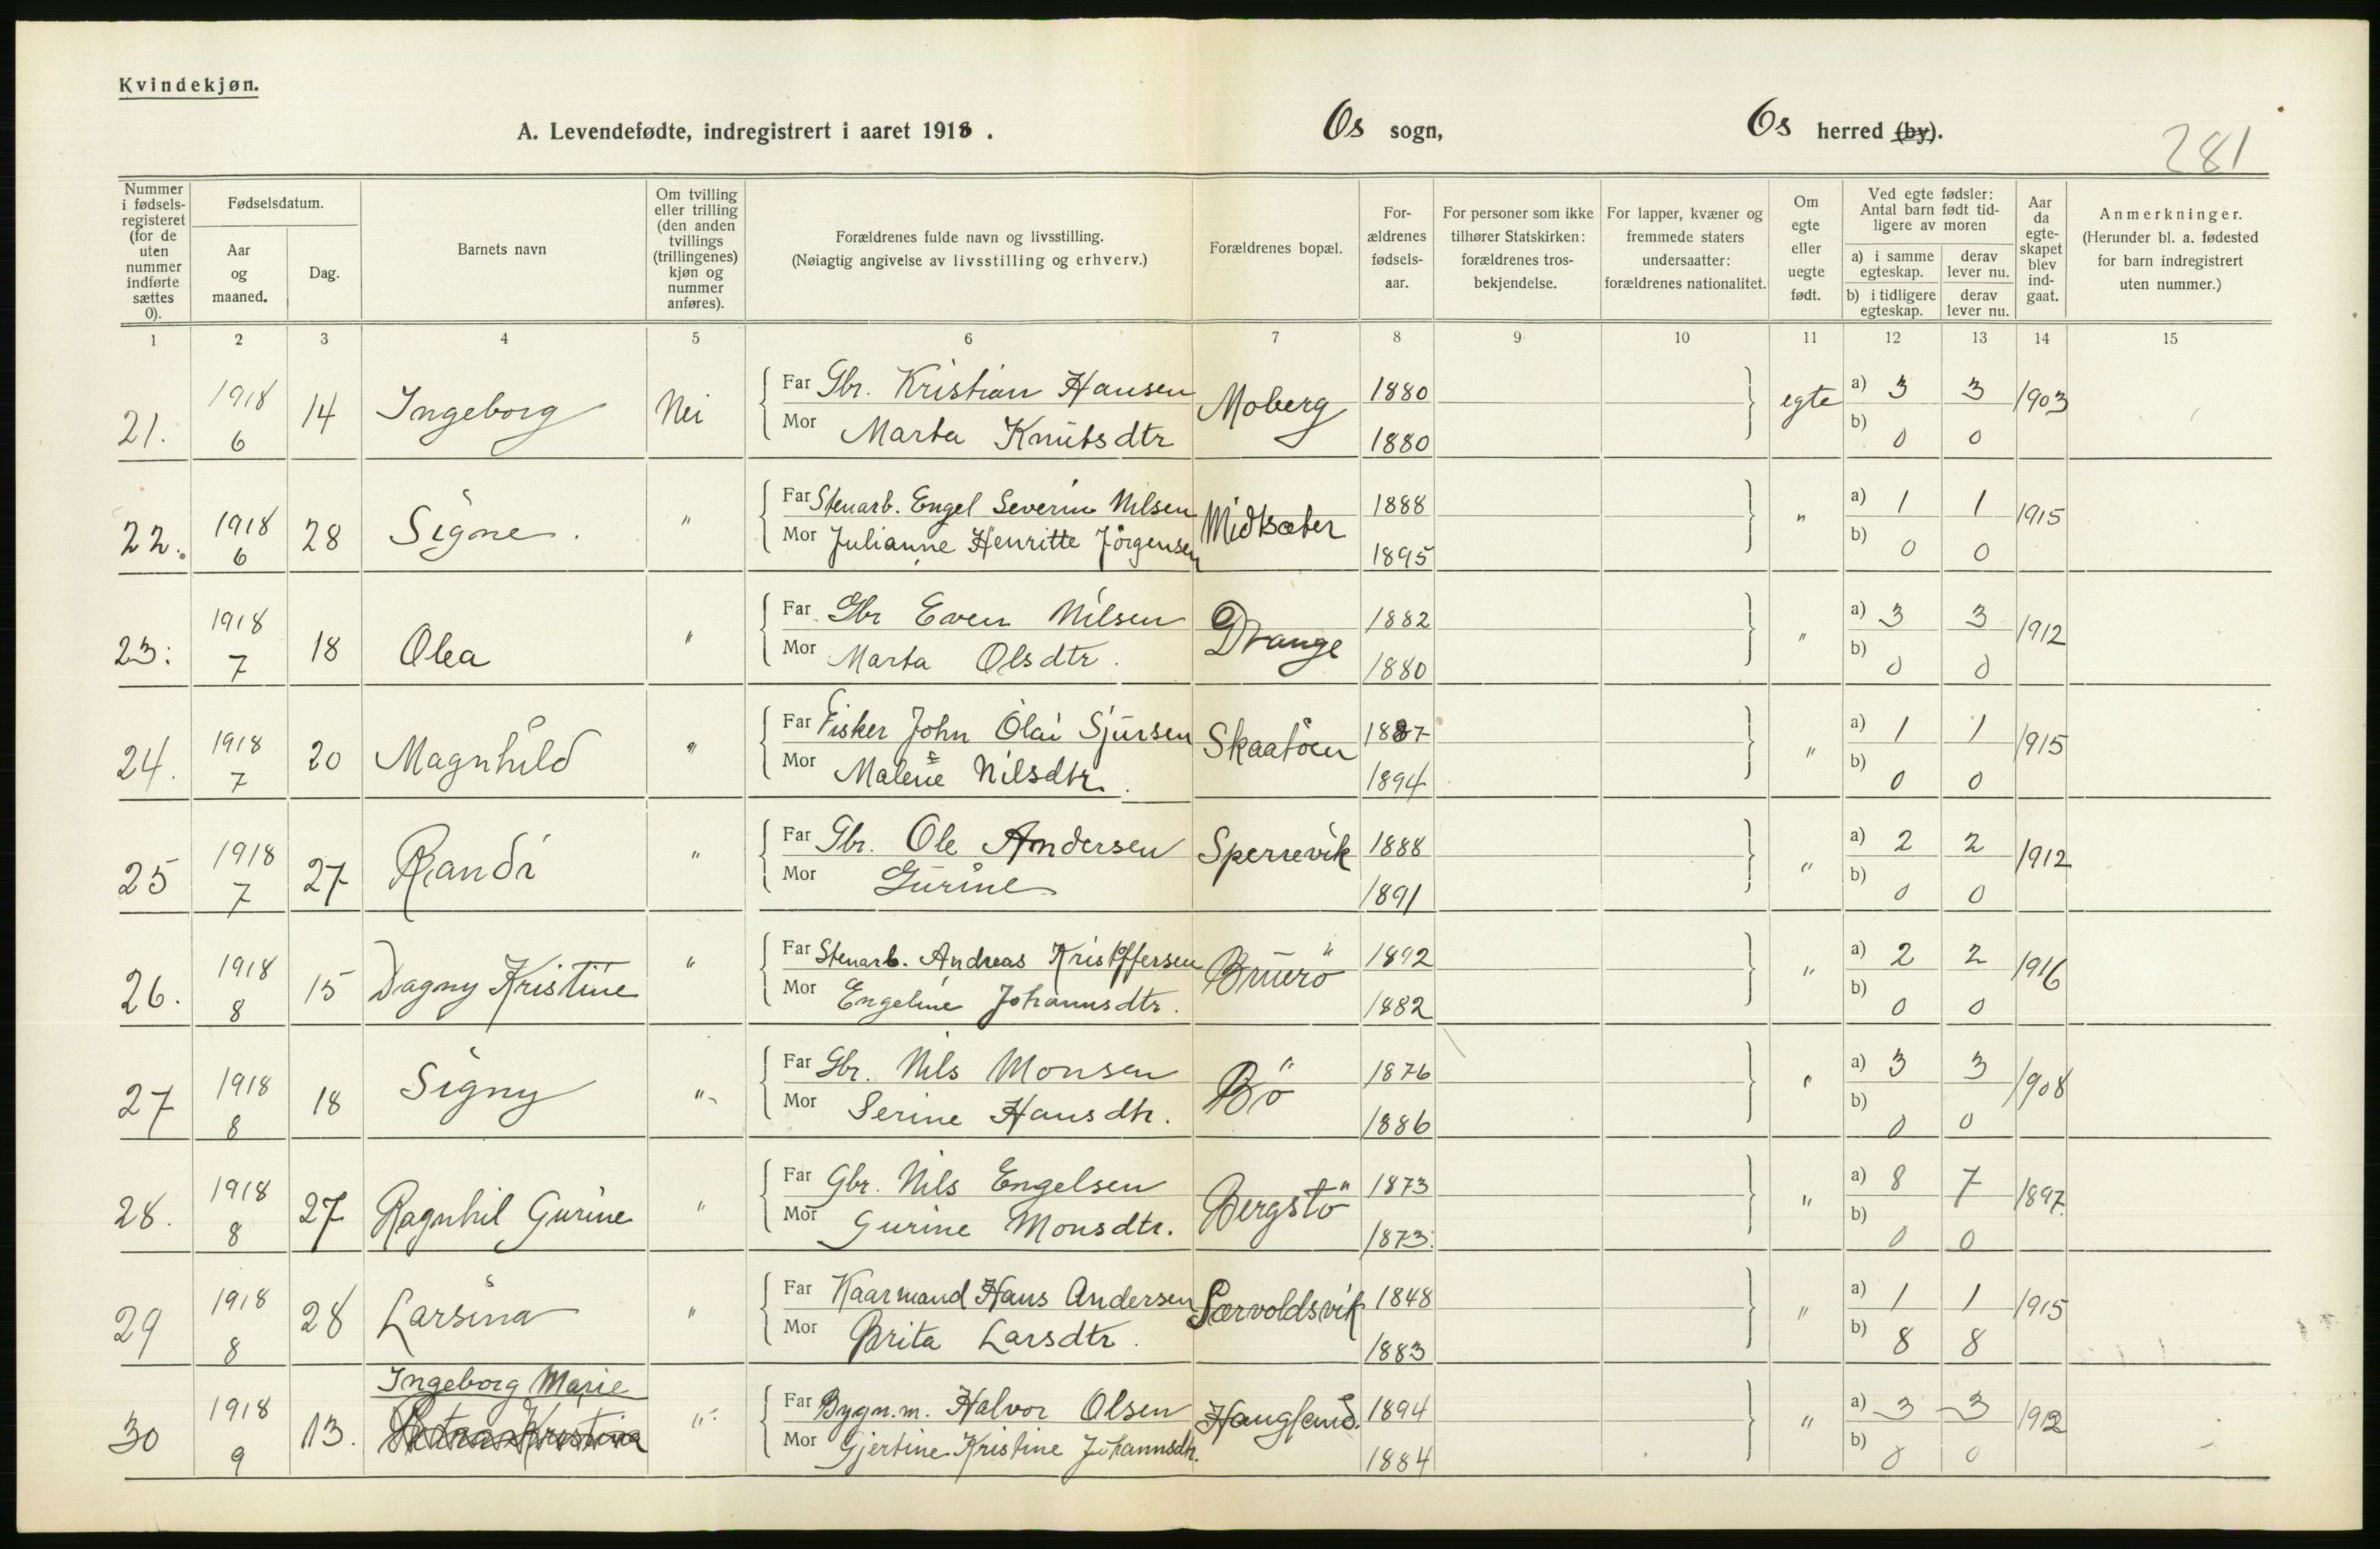 Kvindekjøn.
A. Levendefødte, indregistrert i aaret 1918. Os sogn, Os herred (by).
281
Nummer i fødsels-registeret (for de uten nummer indførte sættes 0).
Fødselsdatum.
Aar og maaned.
Dag.
Barnets navn
Om tvilling eller trilling (den anden tvillings (trillingenes) kjøn og nummer anføres).
Forældrenes fulde navn og livsstilling.
(Nøiagtig angivelse av livsstilling og erhverv.)
Forældrenes bopæl.
For-ældrenes fødsels-aar.
For personer som ikke tilhører Statskirken: forældrenes tros-bekjendelse.
For lapper, kvæner og fremmede staters undersaatter: forældrenes nationalitet.
Om egte eller uegte født.
Ved egte fødsler: Antal barn født tid-ligere av moren
a) i samme egteskap. derav lever nu.
b) i tidligere egteskap. derav lever nu.
Aar da egte-skapet blev ind-gaat.
Anmerkninger.
(Herunder bl. a. fødested for barn indregistrert uten nummer.)
1 2 3 4 5 6 7 8 9 10 11 12 13 14 15
21. 1918 6 14 Ingeborg Nei Far Gbr. Kristian Hansen Moberg 1880 egte a) 3 3 1903
Mor Marta Knutsdtr 1880 b) 0 0
22. 1918 6 28 Signe. " Far Stenarb. Engel Severin Nilsen Midtsæter 1888 " a) 1 1 1915
Mor Julianne Henritte Jörgensen 1895 b) 0 0
23. 1918 7 18 Olea " Far Gbr Even Nilsen Drange 1882 " a) 3 3 1912
Mor Marta Olsdtr. 1880 b) 0 0
24. 1918 7 20 Magnhild " Far Fisker John Olai Sjursen Skaatöen 1887 " a) 1 1 1915
Mor Malene Nilsdtr. 1894 b) 0 0
25 1918 7 27 Randi " Far Gbr. Ole Andersen Sperrevik 1888 " a) 2 2 1912
Mor Gurine 1891 b) 0 0
26. 1918 8 15 Dagny Kristine " Far Stenarb. Andreas Kristoffersen Bruerö 1892 " a) 2 2 1916
Mor Engeline Johannsdtr. 1882 b) 0 0
27 1918 8 18 Signy " Far Gbr. Nils Monsen Bö 1876 " a) 3 3 1908
Mor Serine Hansdtr. 1886 b) 0 0
28. 1918 8 27 Ragnhil Gurine " Far Gbr. Nils Engelsen Bergstö 1873 " a) 8 7 1897.
Mor Gurine Monsdtr. 1873. b) 0 0
29 1918 8 28 Larsina " Far Kaarmand Hans Andersen Særvoldsvik 1848 " a) 1 1 1915
Mor Brita Larsdtr. 1883 b) 8 8
Ingeborg Marie
30 1918 9 13. Petra Kristina " Far Bygn.m. Halvor Olsen Haugland. 1894 " a) 3 3 1912
Mor Gjertine Kristine Johannsdtr. 1884 b) 0 0